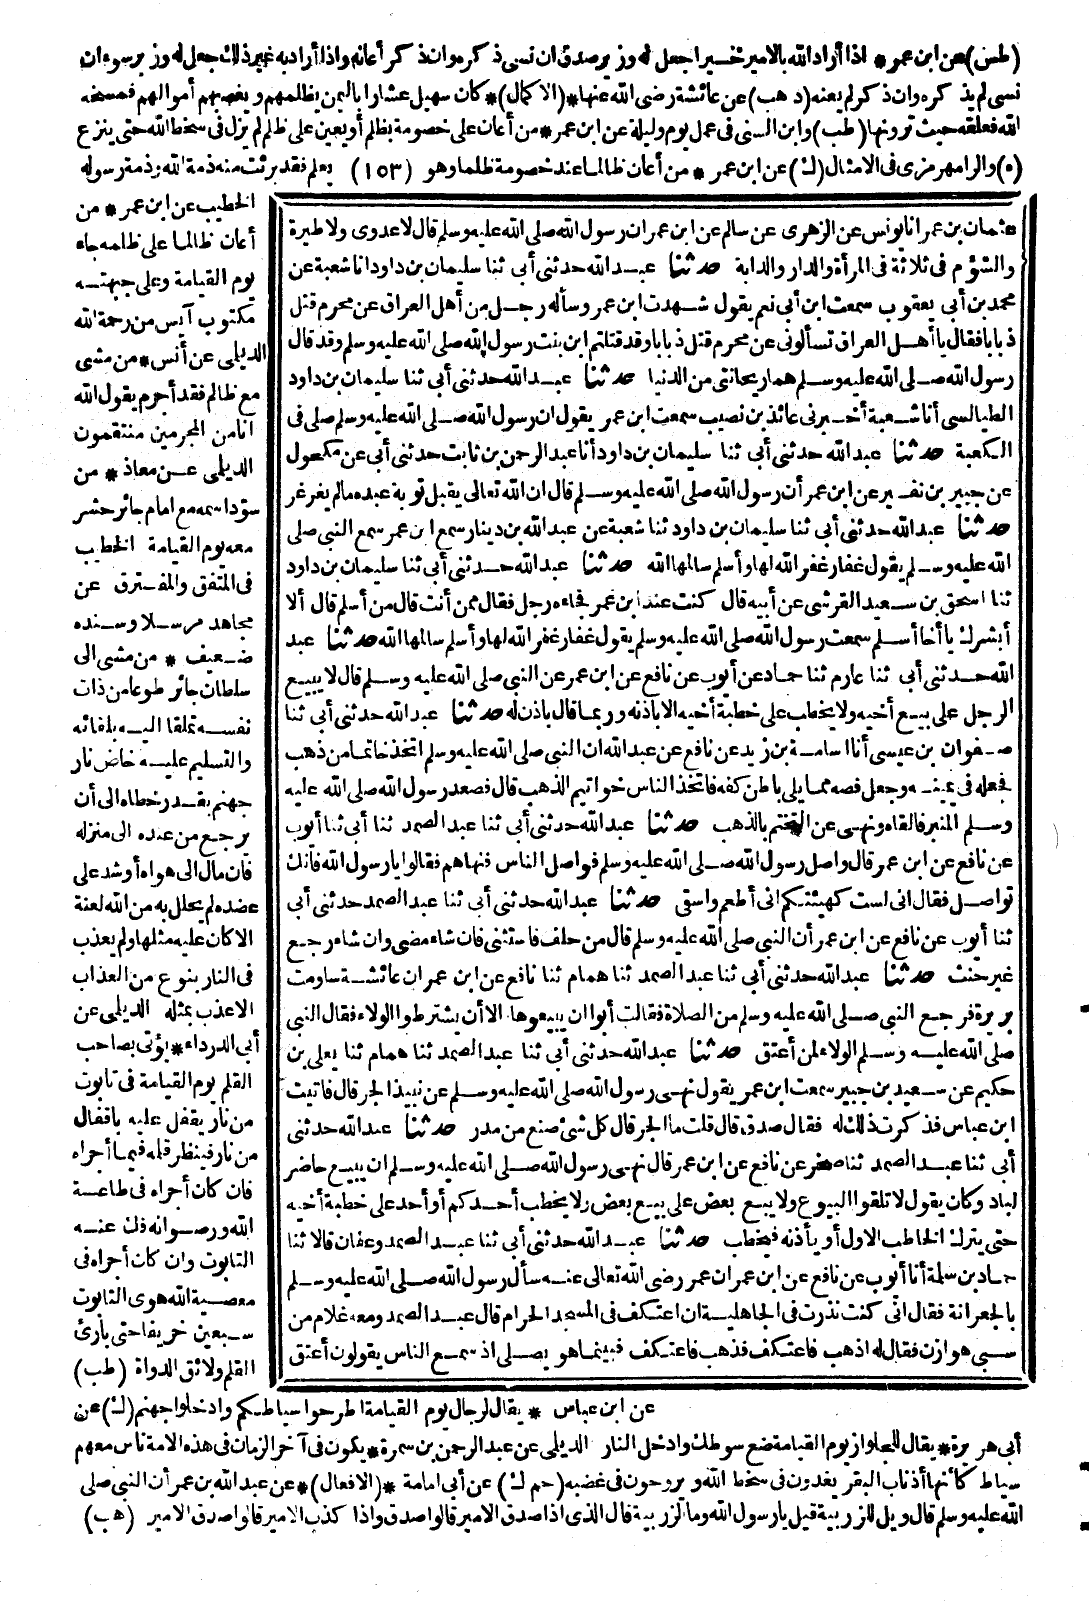 (طس) عن ابن عمر * اذا أراد الله بالامير خيرا جعل له وزير صدق ان نسى ذكره وان ذكر أعانه واذا أراد به غير ذلك جعل له وزير سوء ان
نسى لم يذكره وان ذكر لم يعنه (د هب) عن عائشة رضى الله عنها * (الاكمال) * كان سهيل عشارا باليمن يظلمهم ويغصبهم أموالهم فمسخه
الله فعلقه حيث ترونها (طب) وابن السنى فى عمل يوم وليلة عن ابن عمر * من أعان على خصومة بظلم أو يعين على ظلم لم يزل فى سخط الله حتى ينزع
(ه) والرامهرمزى فى الامثال (ك) عن ابن عمر * من أعان ظالما عند خصومة ظلما وهو (١٥٣) يعلم فقد برئت منه ذمة الله وذمة رسوله
الخطيب عن ابن عمر * من
أعان ظالما على ظلمه جاء
يوم القيامة وعلى جبهته
مكتوب آيس من رحمة الله
الديلى عن أنس * من مشى
مع ظالم فقد أجرم يقول الله
انا من المجرمين منتقمون
الديلى عن معاذ * من
سوّد اسمه مع امام جائر حشر
معه يوم القيامة الخطيب
فى المتفق والمفترق عن
مجاهد مرسلا وسنده
ضعيف * من مشى الى
سلطان جائر طوعا من ذات
نفسه تملقا اليه بلقائه
والتسليم عليه خاض نار
جهنم بقدر خطاه الى أن
يرجع من عنده الى منزله
فان مال الى هواه أو شد على
عضده لم يحلل به من الله لعنة
الا كان عليه مثلها ولم يعذب
فى النار بنوع من العذاب
الا عذب بمثله الديلى عن
أبى الدرداء * يؤتى بصاحب
القلم يوم القيامة فى تابوت
من نار يقفل عليه باقفال
من نار فينظر قلمه فيما أجراه
فان كان أجراه فى طاعة
الله ورضوانه فك عنه
التابوت وان كان أجراه فى
معصية الله هوى التابوت
سبعين خريفا حتى بارئ
القلم ولائق الدواة (طب)
عثمان بن عمر انا يونس عن الزهرى عن سالم عن ابن عمر ان رسول الله صلى الله عليه وسلم قال لا عدوى ولا طيرة
والشؤم فى ثلاثة فى المرأة والدار والدابة حدثنا عبد الله حدثنى أبى ثنا سليمان بن داود انا شعبة عن
محمد بن أبى يعقوب سمعت ابن أبى نعم يقول شهدت ابن عمر وسأله رجل من أهل العراق عن محرم قتل
ذبابا فقال يا أهل العراق تسألونى عن محرم قتل ذبابا وقد قتلتم ابن بنت رسول الله صلى الله عليه وسلم وقد قال
رسول الله صلى الله عليه وسلم هما ريحانتى من الدنيا حدثنا عبد الله حدثنى أبى ثنا سليمان بن داود
الطيالسى أنا شعبة أخبرنى عائذ بن نصيب سمعت ابن عمر يقول ان رسول الله صلى الله عليه وسلم صلى فى
الكعبة حدثنا عبد الله حدثنى أبى ثنا سليمان بن داود أنا عبد الرحمن بن ثابت حدثنى أبى عن مكحول
عن جبير بن نفير عن ابن عمر أن رسول الله صلى الله عليه وسلم قال ان الله تعالى يقبل توبة عبده ما لم يغرغر
حدثنا عبد الله حدثنى أبى ثنا سليمان بن داود ثنا شعبة عن عبد الله بن دينار سمع ابن عمر سمع النبى صلى
الله عليه وسلم يقول غفار غفر الله لها وأسلم سالمها الله حدثنا عبد الله حدثنى أبى ثنا سليمان بن داود
ثنا اسحق بن سعيد القرشى عن أبيه قال كنت عند ابن عمر فجاءه رجل فقال ممن أنت قال من أسلم قال ألا
أبشرك يا أخا أسلم سمعت رسول الله صلى الله عليه وسلم يقول غفار غفر الله لها وأسلم سالمها الله حدثنا عبد
الله حدثنى أبى ثنا عارم ثنا حماد عن أيوب عن نافع عن ابن عمر عن النبى صلى الله عليه وسلم قال لا يبيع
الرجل على بيع أخيه ولا يخطب على خطبة أخيه الا باذنه وربما قال يأذن له حدثنا عبد الله حدثنى أبى ثنا
صفوان بن عيسى أنا اسامة بن زيد عن نافع عن عبد الله ان النبى صلى الله عليه وسلم اتخذ خاتما من ذهب
فجعله فى يمينه وجعل فصه مما يلى باطن كفه فاتخذ الناس خواتيم الذهب قال فصعد رسول الله صلى الله عليه
وسلم المنبر فالقاه ونهى عن التختم بالذهب حدثنا عبد الله حدثنى أبى ثنا عبد الصمد ثنا أبى ثنا أيوب
عن نافع عن ابن عمر قال واصل رسول الله صلى الله عليه وسلم فواصل الناس فنهاهم فقالوا يا رسول الله فانك
تواصل فقال انى لست كهيئتكم انى أطعم واسقى حدثنا عبد الله حدثنى أبى ثنا عبد الصمد حدثنى أبى
ثنا أيوب عن نافع عن ابن عمر أن النبى صلى الله عليه وسلم قال من حلف فاستثنى فان شاء مضى وان شاء رجع
غير حنث حدثنا عبد الله حدثنى أبى ثنا عبد الصمد ثنا همام ثنا نافع عن ابن عمر ان عائشة ساومت
بريرة فرجع النبى صلى الله عليه وسلم من الصلاة فقالت أبوا ان يبيعوها الا أن يشترطوا الولاء فقال النبى
صلى الله عليه وسلم الولاء لمن أعتق حدثنا عبد الله حدثنى أبى ثنا عبد الصمد ثنا همام ثنا يعلى بن
حكيم عن سعيد بن جبير سمعت ابن عمر يقول نهى رسول الله صلى الله عليه وسلم عن نبيذ الجر قال فاتيت
ابن عباس فذكرت ذلك له فقال صدق قال قلت ما الجر قال كل شئ صنع من مدر حدثنا عبد الله حدثنى
أبى ثنا عبد الصمد ثنا صخر عن نافع عن ابن عمر قال نهى رسول الله صلى الله عليه وسلم ان يبيع حاضر
لباد وكان يقول لا تلقوا البيوع ولا يبع بعض على بيع بعض ولا يخطب أحدكم أو أحد على خطبة أخيه
حتى يترك الخاطب الاول أو يأذنه فيخطب حدثنا عبد الله حدثنى أبى ثنا عبد الصمد وعفان قالا ثنا
حماد بن سلمة أنا أيوب عن نافع عن ابن عمر ان عمر رضى الله تعالى عنه سأل رسول الله صلى الله عليه وسلم
بالجعرانة فقال انى كنت نذرت فى الجاهلية ان اعتكف فى المسجد الحرام قال عبد الصمد ومعه غلام من
سبى هوازن فقال له اذهب فاعتكف فذهب فاعتكف فبينما هو يصلى اذ سمع الناس يقولون أعتق
عن ابن عباس * يقال لرجال يوم القيامة اطرحوا سياطكم وادخلوا جهنم (ك) عن
أبى هريرة * يقال للجلواز يوم القيامة ضع سوطك وادخل النار الديلى عن عبد الرحمن بن سمرة * يكون فى آخر الزمان فى هذه الامة ناس معهم
سياط كأنها أذناب البقر يغدون فى سخط الله ويروحون فى غضبه (حم ك) عن أبى امامة * (الافعال) * عن عبد الله بن عمر أن النبى صلى
الله عليه وسلم قال ويل للزربية قيل يا رسول الله وما الزربية قال الذى اذا صدق الامير قالوا صدق واذا كذب الامير قالوا صدق الامير (هب)